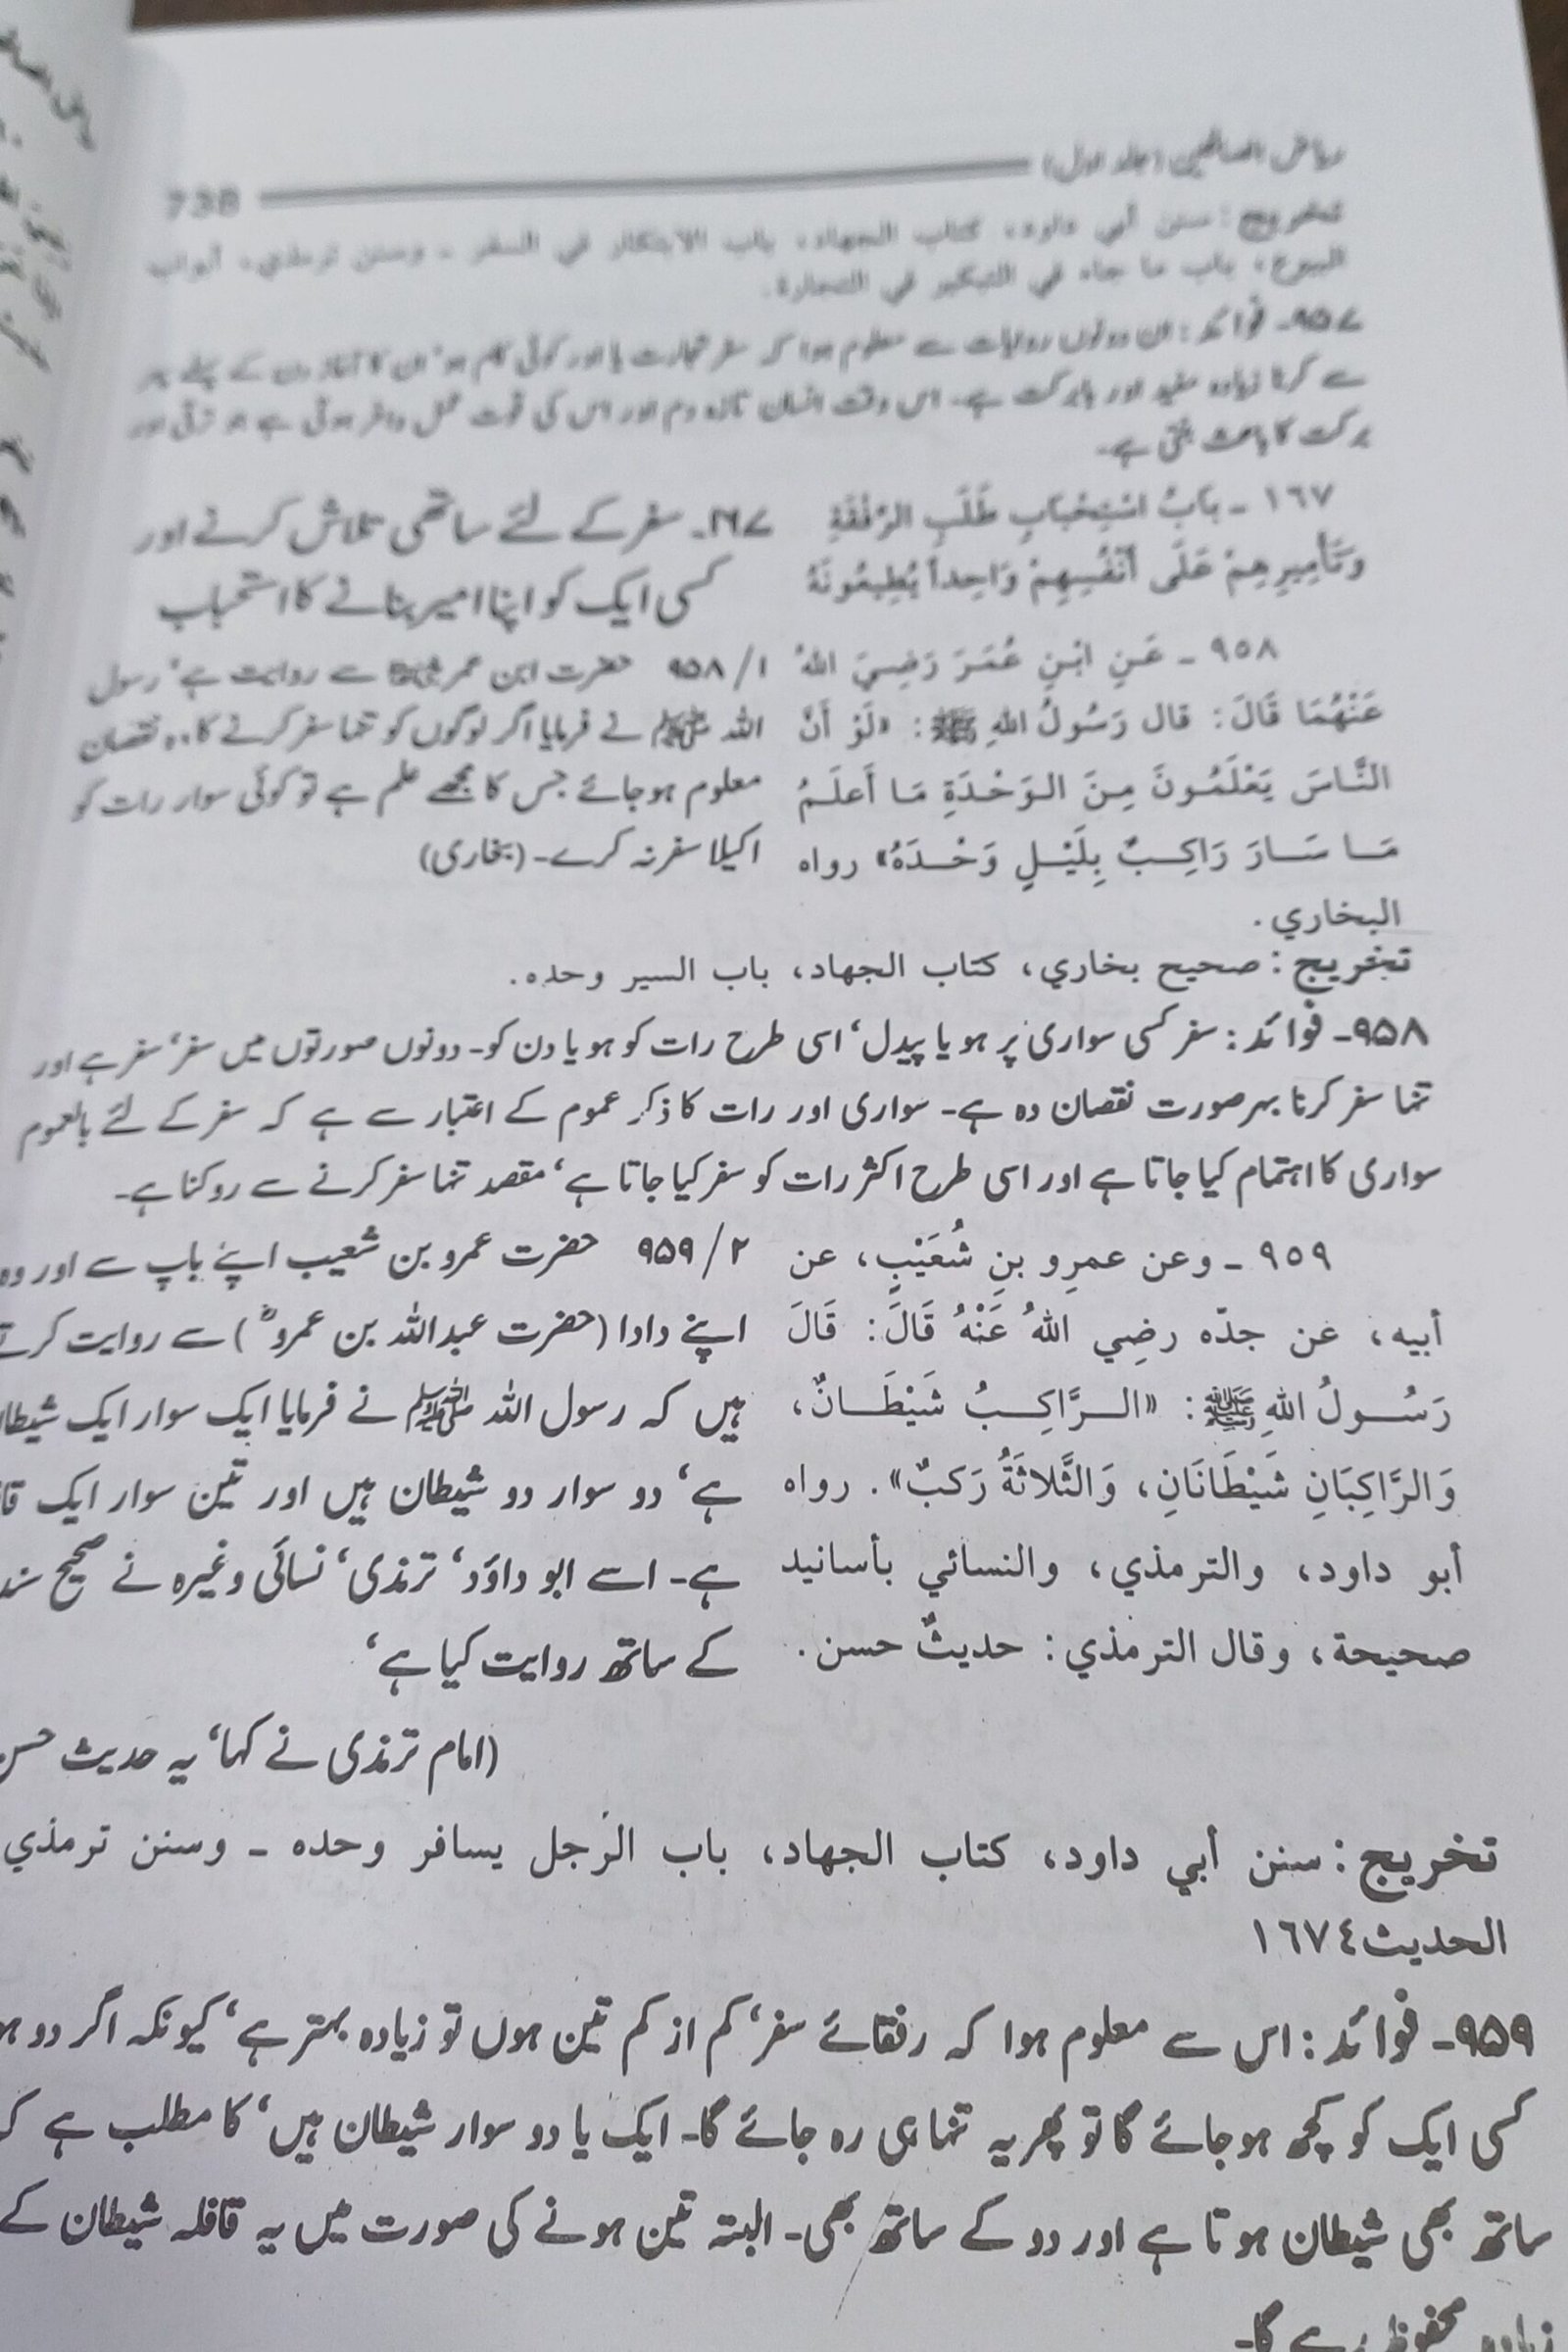 ریاض الصالحین (جلد اول)
738
تخريج: سنن أبي داود، كتاب الجهاد، باب الابتكار في السفر ـ وسنن ترمذي، أبواب
البيوع، باب ما جاء في التبكير في التجارة.
۹۵۷۔ فوائد: ان دونوں روایات سے معلوم ہوا کہ سفر تجارت یا اور کوئی کام ہو' ان کا آغاز دن کے پہلے پہر
سے کرنا زیادہ مفید اور بابرکت ہے۔ اس وقت انسان تازہ دم اور اس کی قوت عمل وافر ہوتی ہے جو ترقی اور
برکت کا باعث بنتی ہے۔
١٦٧ ـ بَابُ اسْتِحْبَابِ طَلَبِ الرُّفْقَةِ
وَتَأْمِيرِهِمْ عَلَى أَنْفُسِهِمْ وَاحِداً يُطِيعُونَهُ
۱۶۷۔ سفر کے لئے ساتھی تلاش کرنے اور
کسی ایک کو اپنا امیر بنانے کا استحباب
٩٥٨ ـ عَنِ ابْنِ عُمَرَ رَضِيَ اللهُ
عَنْهُمَا قَالَ: قال رَسُولُ اللهِ ﷺ: «لَوْ أَنَّ
النَّاسَ يَعْلَمُونَ مِنَ الوَحْدَةِ مَا أَعلَمُ
مَا سَارَ رَاكِبٌ بِلَيْلٍ وَحْدَهُ» رواه
البخاري.
۱/ ۹۵۸ حضرت ابن عمر رضی اللہ عنہما سے روایت ہے' رسول
اللہ ﷺ نے فرمایا اگر لوگوں کو تنہا سفر کرنے کا وہ نقصان
معلوم ہو جائے جس کا مجھے علم ہے تو کوئی سوار رات کو
اکیلا سفر نہ کرے۔ (بخاری)
تخريج: صحيح بخاري، كتاب الجهاد، باب السير وحده.
۹۵۸۔ فوائد: سفر کسی سواری پر ہو یا پیدل' اسی طرح رات کو ہو یا دن کو۔ دونوں صورتوں میں سفر' سفر ہے اور
تنہا سفر کرنا بہرصورت نقصان دہ ہے۔ سواری اور رات کا ذکر عموم کے اعتبار سے ہے کہ سفر کے لئے بالعموم
سواری کا اہتمام کیا جاتا ہے اور اسی طرح اکثر رات کو سفر کیا جاتا ہے' مقصد تنہا سفر کرنے سے روکنا ہے۔
٩٥٩ ـ وعن عمرِو بنِ شُعَيْبٍ، عن
أبيه، عن جدّه رضِي اللهُ عَنْهُ قَالَ: قَالَ
رَسُولُ اللهِ ﷺ: «الرَّاكِبُ شَيْطَانٌ،
وَالرَّاكِبَانِ شَيْطَانَانِ، وَالثَّلاثَةُ رَكبٌ». رواه
أبو داود، والترمذي، والنسائي بأسانيد
صحيحة، وقال الترمذي: حديثٌ حسن.
۲/ ۹۵۹ حضرت عمرو بن شعیب اپنے باپ سے اور وہ
اپنے دادا (حضرت عبداللہ بن عمروؓ) سے روایت کرتے
ہیں کہ رسول اللہ ﷺ نے فرمایا ایک سوار ایک
ہے' دو سوار دو شیطان ہیں اور تین سوار ایک
ہے۔ اسے ابو داؤد' ترمذی' نسائی وغیرہ نے صحیح
کے ساتھ روایت کیا ہے'
(امام ترمذی نے کہا' یہ حدیث حسن
تخريج: سنن أبي داود، كتاب الجهاد، باب الرجل يسافر وحده ـ وسنن ترمذي
الحديث١٦٧٤
۹۵۹۔ فوائد: اس سے معلوم ہوا کہ رفقائے سفر' کم از کم تین ہوں تو زیادہ بہتر ہے' کیونکہ اگر دو
کسی ایک کو کچھ ہو جائے گا تو پھر یہ تنہا ہی رہ جائے گا۔ ایک یا دو سوار شیطان ہیں' کا مطلب ہے
ساتھ بھی شیطان ہوتا ہے اور دو کے ساتھ بھی۔ البتہ تین ہونے کی صورت میں یہ قافلہ شیطان کے
محفوظ رہے گا۔